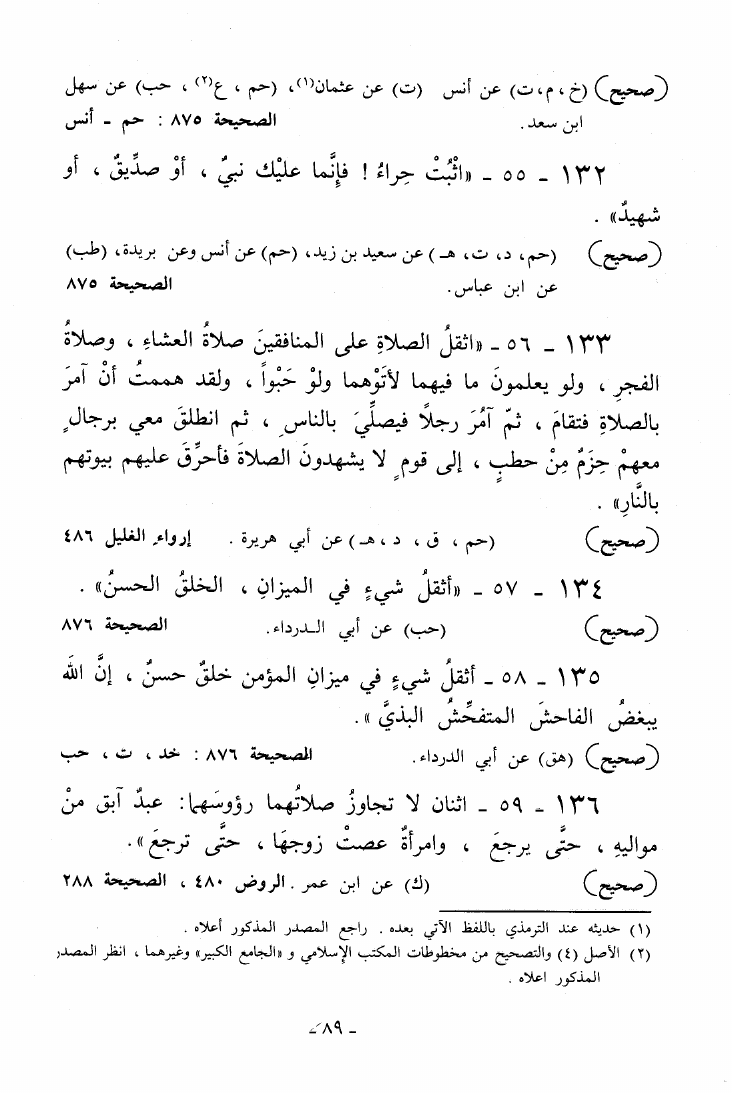 (صحيح) (خ ، م ، ت) عن أنس (ت) عن عثمان(١)، (حم ، ع(٢) ، حب) عن سهل
ابن سعد. الصحيحة ٨٧٥ : حم - أنس
١٣٢ - ٥٥ - «اثْبُتْ حِراءُ ! فإنَّما عليكَ نبيٌّ ، أوْ صدِّيقٌ ، أو
شهيدٌ» .
(صحيح) (حم، د، ت، هـ) عن سعيد بن زيد، (حم) عن أنس وعن بريدة، (طب)
عن ابن عباس. الصحيحة ٨٧٥
١٣٣ - ٥٦ - «اثقلُ الصلاةِ على المنافقينَ صلاةُ العشاءِ ، وصلاةُ
الفجرِ ، ولو يعلمونَ ما فيهما لأتَوْهما ولوْ حَبْواً ، ولقد هممتُ أنْ آمرَ
بالصلاةِ فتقامَ ، ثمّ آمُرَ رجلاً فيصلّيَ بالناسِ ، ثم انطلقَ معي برجالٍ
معهمْ حِزَمٌ مِنْ حطبٍ ، إلى قومٍ لا يشهدونَ الصلاةَ فأحرِّقَ عليهم بيوتهم
بالنَّارِ» .
(صحيح) (حم ، ق ، د ، هـ) عن أبي هريرة . إرواء الغليل ٤٨٦
١٣٤ - ٥٧ - «أثقلُ شيءٍ في الميزانِ ، الخلقُ الحسنُ» .
(صحيح) (حب) عن أبي الدرداء. الصحيحة ٨٧٦
١٣٥ - ٥٨ - أثقلُ شيءٍ في ميزانِ المؤمن خلقٌ حسنٌ ، إنَّ الله
يبغضُ الفاحشَ المتفحِّشَ البذيَّ» .
(صحيح) (هق) عن أبي الدرداء. الصحيحة ٨٧٦ : خد ، ت ، حب
١٣٦ - ٥٩ - اثنان لا تجاوزُ صلاتُهما رؤوسَهما: عبدٌ آبق منْ
مواليهِ ، حتَّى يرجعَ ، وامرأةٌ عصتْ زوجهَا ، حتَّى ترجعَ».
(صحيح) (ك) عن ابن عمر. الروض ٤٨٠ ، الصحيحة ٢٨٨
(١) حديثه عند الترمذي باللفظ الآتي بعده . راجع المصدر المذكور أعلاه .
(٢) الأصل (٤) والتصحيح من مخطوطات المكتب الإسلامي و «الجامع الكبير» وغيرهما ، انظر المصدر
المذكور اعلاه .
- ٨٩ -